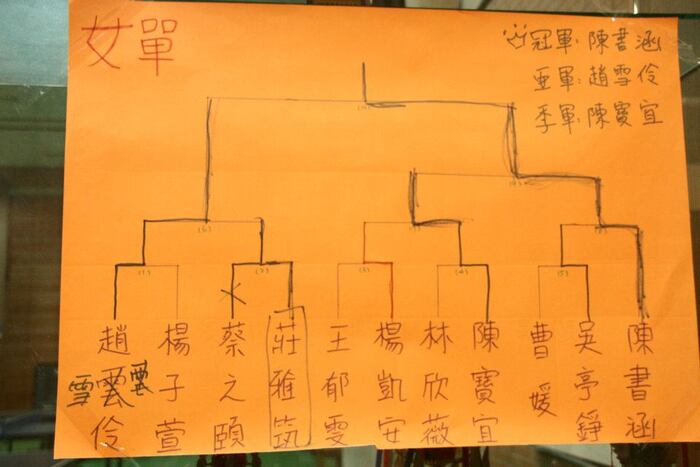 女單
冠軍:陳書涵
亞軍:趙雪伶
季軍:陳寶宜
(1)
(2)
(3)
(4)
(5)
(6)
(7)
趙雲伶
雪
雲
楊子萱
蔡之頤
莊雅筑
王郁雯
楊凱安
林欣薇
陳寶宜
曹媛
吳亭錚
陳書涵